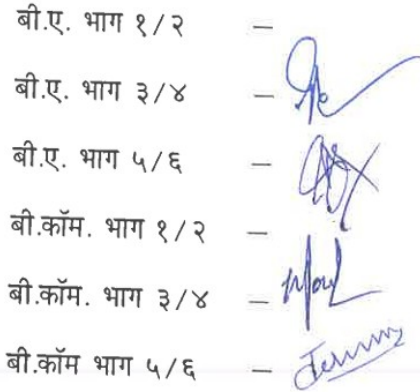 बी.ए. भाग १/२ –
बी.ए. भाग ३/४ –
बी.ए. भाग ५/६ –
बी.कॉम. भाग १/२ –
बी.कॉम. भाग ३/४ –
बी.कॉम भाग ५/६ –